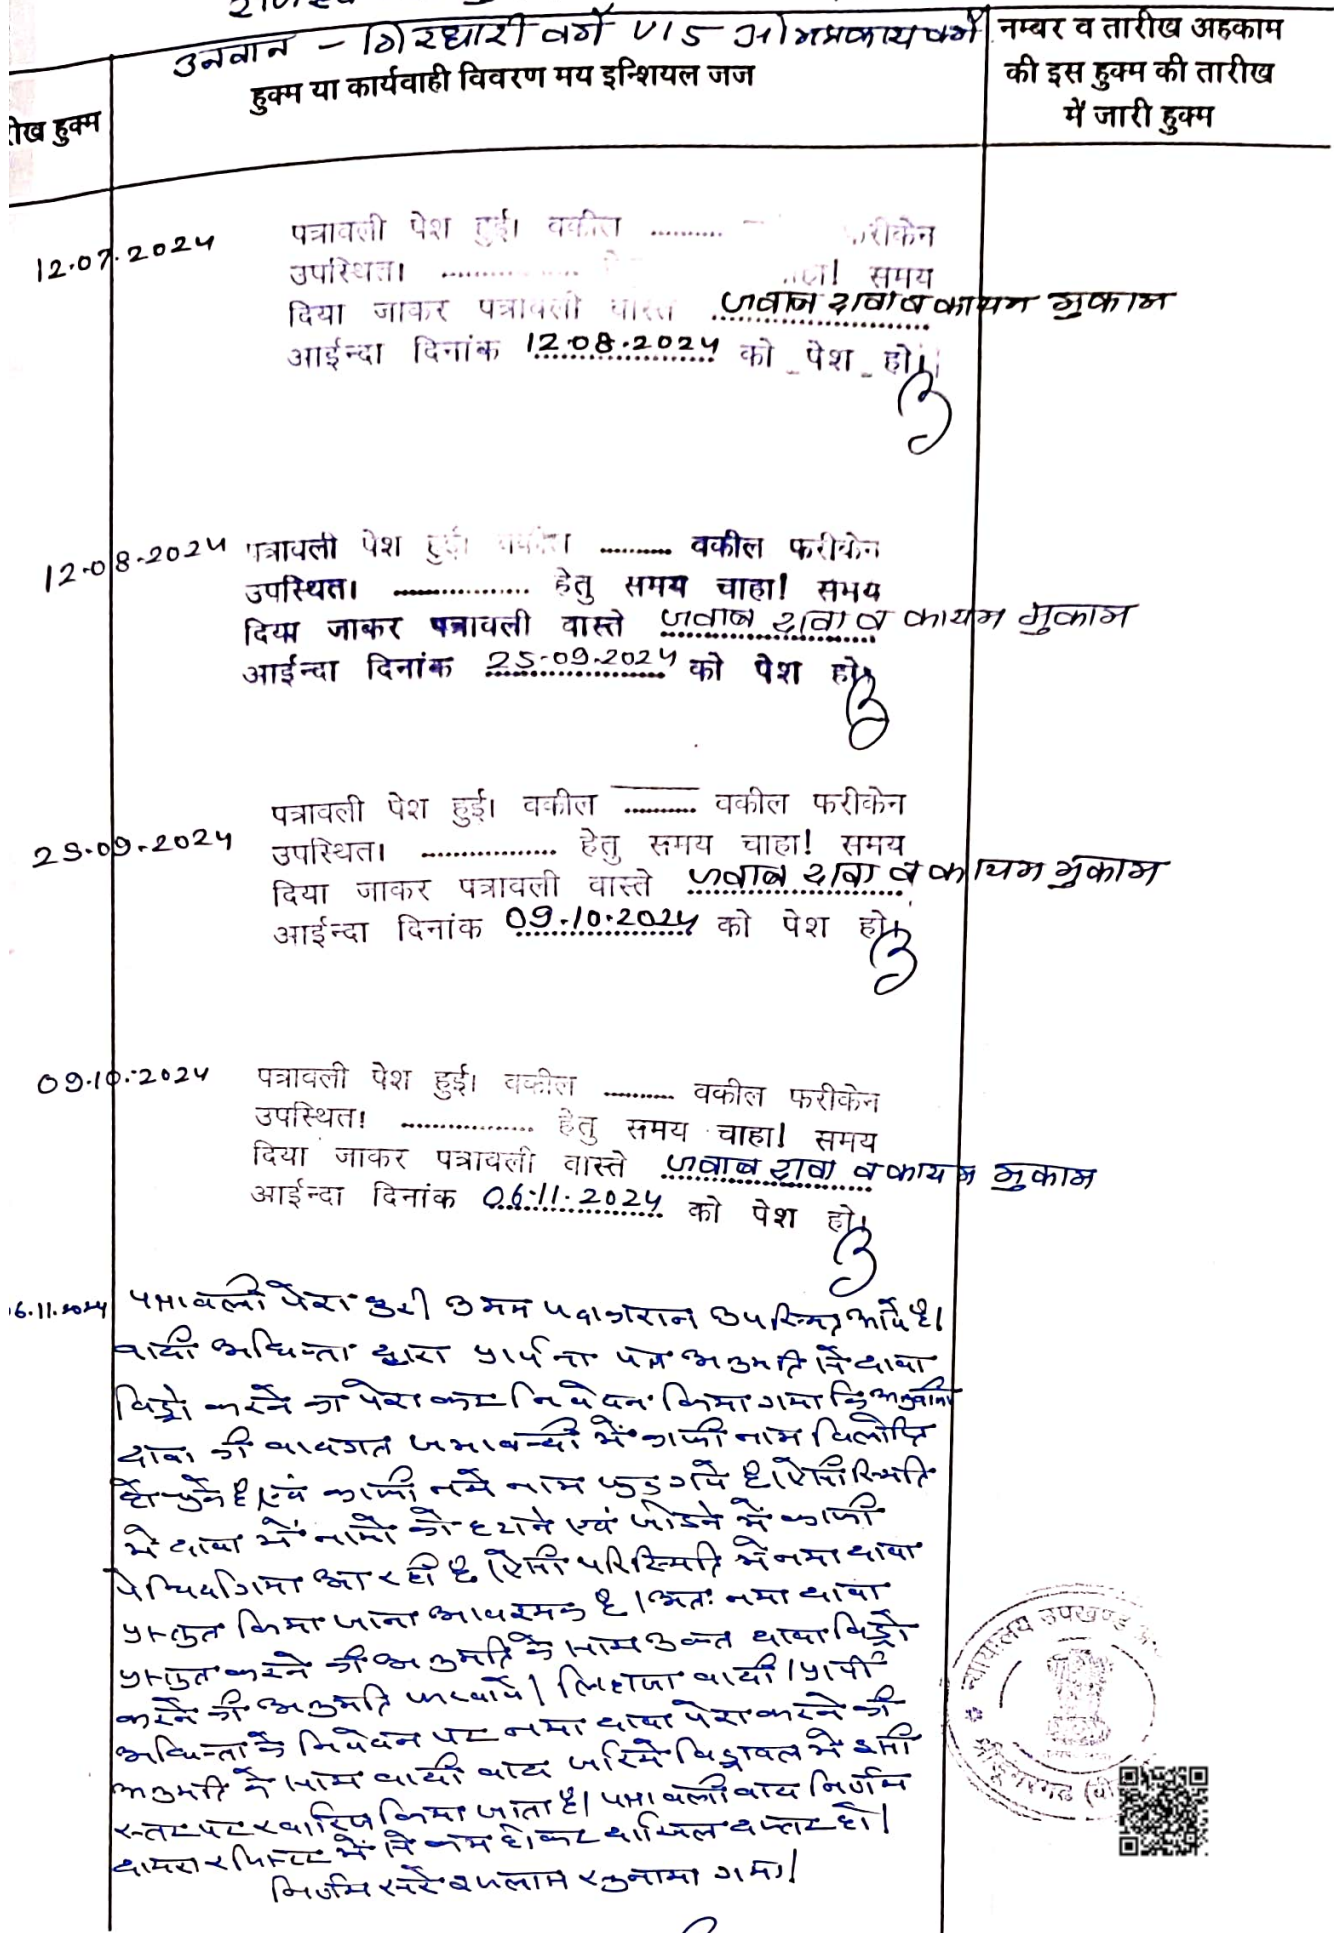 उनवान - गिरधारी वगै V/S ओमप्रकाश वगै
नम्बर व तारीख अहकाम
की इस हुक्म की तारीख
में जारी हुक्म
हुक्म या कार्यवाही विवरण मय इन्शियल जज
रीख हुक्म
12.07.2024
पत्रावली पेश हुई। वकील .......... फरीकेन
उपस्थित। .................. समय
दिया जाकर पत्रावली वास्ते जवाब दावा व कायम मुकाम
आईन्दा दिनांक 12.08.2024 को पेश हो।
12.08.2024
पत्रावली पेश हुई। वकील .......... वकील फरीकेन
उपस्थित। .................. हेतु समय चाहा! समय
दिया जाकर पत्रावली वास्ते जवाब दावा व कायम मुकाम
आईन्दा दिनांक 25.09.2024 को पेश हो।
25.09.2024
पत्रावली पेश हुई। वकील .......... वकील फरीकेन
उपस्थित। .................. हेतु समय चाहा! समय
दिया जाकर पत्रावली वास्ते जवाब दावा व कायम मुकाम
आईन्दा दिनांक 09.10.2024 को पेश हो।
09.10.2024
पत्रावली पेश हुई। वकील .......... वकील फरीकेन
उपस्थित। .................. हेतु समय चाहा! समय
दिया जाकर पत्रावली वास्ते जवाब दावा व कायम मुकाम
आईन्दा दिनांक 06.11.2024 को पेश हो।
6.11.2024 पत्रावली पेश हुई। उभय पक्षकारान उपस्थित आये है।
वादी अधिवक्ता द्वारा प्रार्थना पत्र अनुमति दावा
विड्रो करने का पेश कर निवेदन किया गया कि
दावा की वादगत जमाबन्दी में काफी नाम विलोपित
हो चुके है एवं काफी नये नाम जुड़ गये है। ऐसी स्थिति
मे दावा में नामो को हटाने एवं जोडने में काफी
पेचिदगिया आ रही है। ऐसी परिस्थिति में नया दावा
प्रस्तुत किया जाना आवश्यक है। अतः नया दावा
प्रस्तुत करने की अनुमति के साथ उक्त दावा विड्रो
करने की अनुमति फरमावें। लिहाजा वादी/प्रार्थी
अधिवक्ता के निवेदन पर नया दावा पेश करने की
अनुमति के साथ वादी वाद जरिये विड्रावल मे इसी
स्तर पर खारिज किया जाता है। पत्रावली वाद निर्णय
दायरा रजिस्टर में से कम होकर दाखिल दफ्तर हो।
निर्णय सरे इजलास सुनाया गया।
न्यायालय उपखण्ड अ
श्रीडूंगरगढ (बी